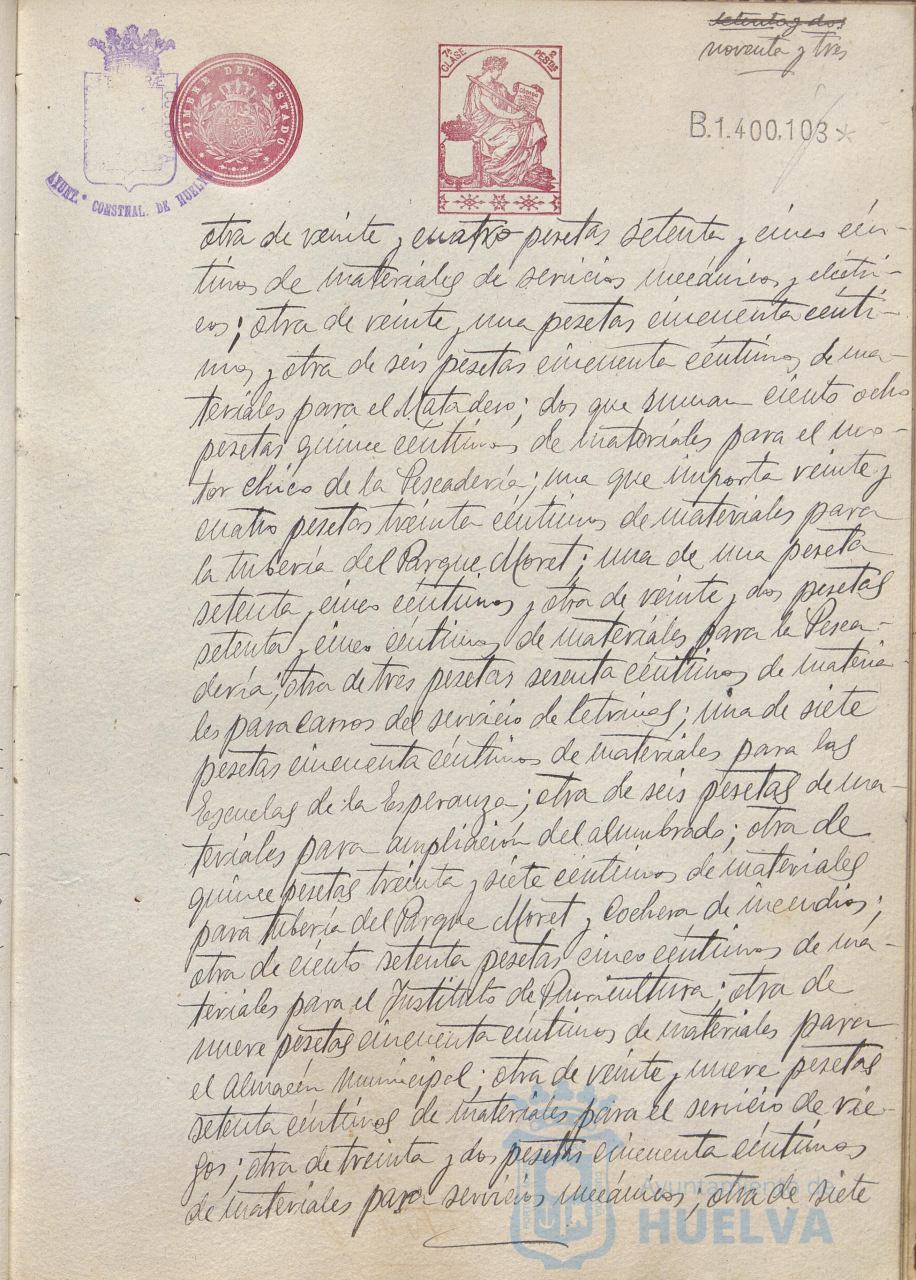 setenta y dos
noventa y tres
TIMBRE DEL ESTADO
7ª CLASE
2 PESTAS
B.1.400.103*
AYUNT. CONSTNAL. DE HUELVA
otra de veinte y cuatro pesetas setenta y cinco cén-
timos de materiales de servicios mecánicos y eléctri-
cos; otra de veinte y una pesetas cincuenta cénti-
mos y otra de seis pesetas cincuenta céntimos de ma-
teriales para el Matadero; dos que suman ciento ocho
pesetas quince céntimos de materiales para el mo-
tor chico de la Pescadería; una que importa veinte y
cuatro pesetas treinta céntimos de materiales para
la tubería del Parque Moret; una de una peseta
setenta y cinco céntimos y otra de veinte y dos pesetas
setenta y cinco céntimos de materiales para la Pesca-
dería; otra de tres pesetas sesenta céntimos de materia-
les para carros del servicio de letrinas; una de siete
pesetas cincuenta céntimos de materiales para las
Escuelas de la Esperanza; otra de seis pesetas de ma-
teriales para ampliación del alumbrado; otra de
quince pesetas treinta y siete céntimos de materiales
para tubería del Parque Moret y Cochera de incendios;
otra de ciento setenta pesetas cinco céntimos de ma-
teriales para el Instituto de Puericultura; otra de
nueve pesetas cincuenta céntimos de materiales para
el Almacén Municipal; otra de veinte y nueve pesetas
setenta céntimos de materiales para el servicio de rie-
gos; otra de treinta y dos pesetas cincuenta céntimos
de materiales para servicios mecánicos; otra de siete
Ayuntamiento de
HUELVA